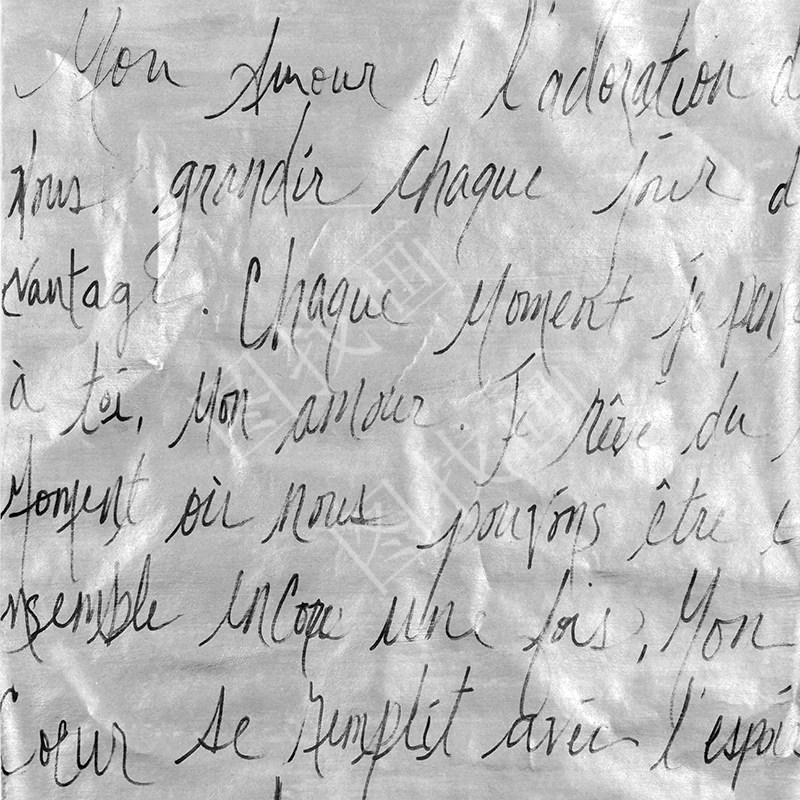 Mon Amour et l'adoration d
Nous grandir chaque jour d
vantage. Chaque Moment je pens
à toi, Mon amour. Je rêve du
Moment où nous pouvons être e
nsemble encore une fois, Mon
Coeur se remplit avec l'espoi